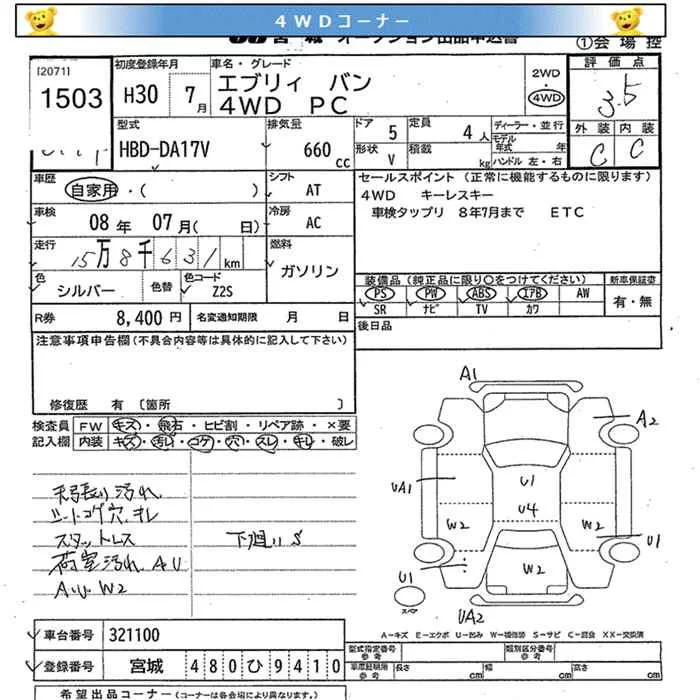 4WDコーナー
宮城 オークション出品申込書
①会場控
[2071]
1503
初度登録年月
H30 7月
車名・グレード
エブリィ バン
4WD PC
2WD
4WD
評価点
3.5
外装 内装
C C
型式
HBD-DA17V
排気量
660 cc
ドア 5
定員 4人
形状 V
積載 kg
ディーラー・並行
モデル年式 年
ハンドル 左・右
車歴
自家用・( )
シフト AT
車検
08年 07月( 日)
冷房 AC
走行
15万8千631km
燃料
ガソリン
色
シルバー
色替
色コード
Z2S
R券 8,400円
名変通知期限 月 日
セールスポイント (正常に機能するものに限ります)
4WD キーレスキー
車検タップリ 8年7月まで ETC
装備品(純正品に限り○をつけてください)
新車保証書
PS PW ABS エアB AW
SR ナビ TV カワ
有・無
後日品
注意事項申告欄(不具合内容等は具体的に記入して下さい)
修復歴 有 〔箇所 〕
検査員記入欄
FW キズ・飛石・ヒビ割・リペア跡・×要
内装 キズ・汚れ・コゲ・穴・スレ・キレ・破レ
天張り汚れ
シートコゲ穴、キレ
スタットレス
荷室汚れ AU
A.U. W2
下廻りS
A1
A2
UA1
U1
U4
W2
W2
U1
U1
W2
UA2
スペア
A-キズ E-エクボ U-凹み W-補修跡 S-サビ C-腐食 XX-交換済
車台番号 321100
登録番号 宮城 480ひ9410
型式指定番号 参考
類別区分番号 参考
車庫証明用 参考
長さ cm
幅 cm
高さ cm
希望出品コーナー(コーナーは各会場により異なります。)